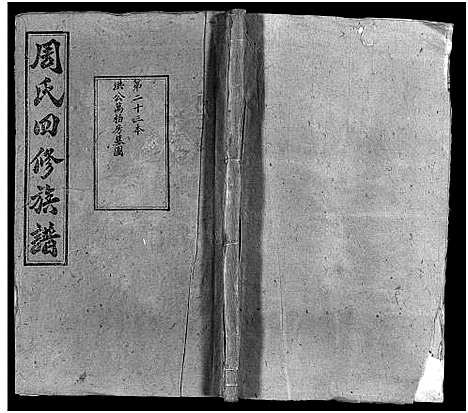 周氏四修族譜
第二十三本
洪公萬柏房墓圖